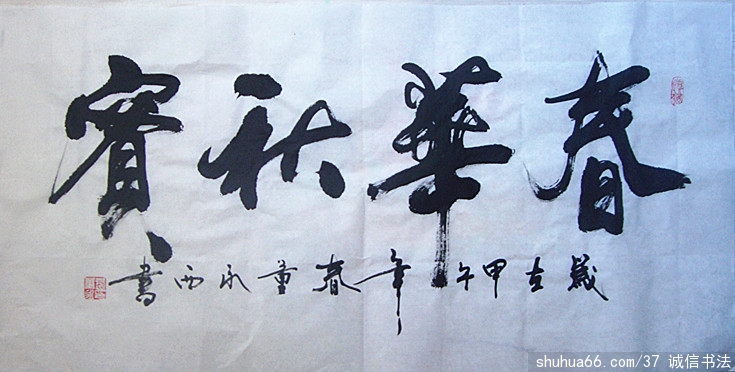 春華秋實
歲在甲午年春董永西書
shuhua66.com/37 诚信书法